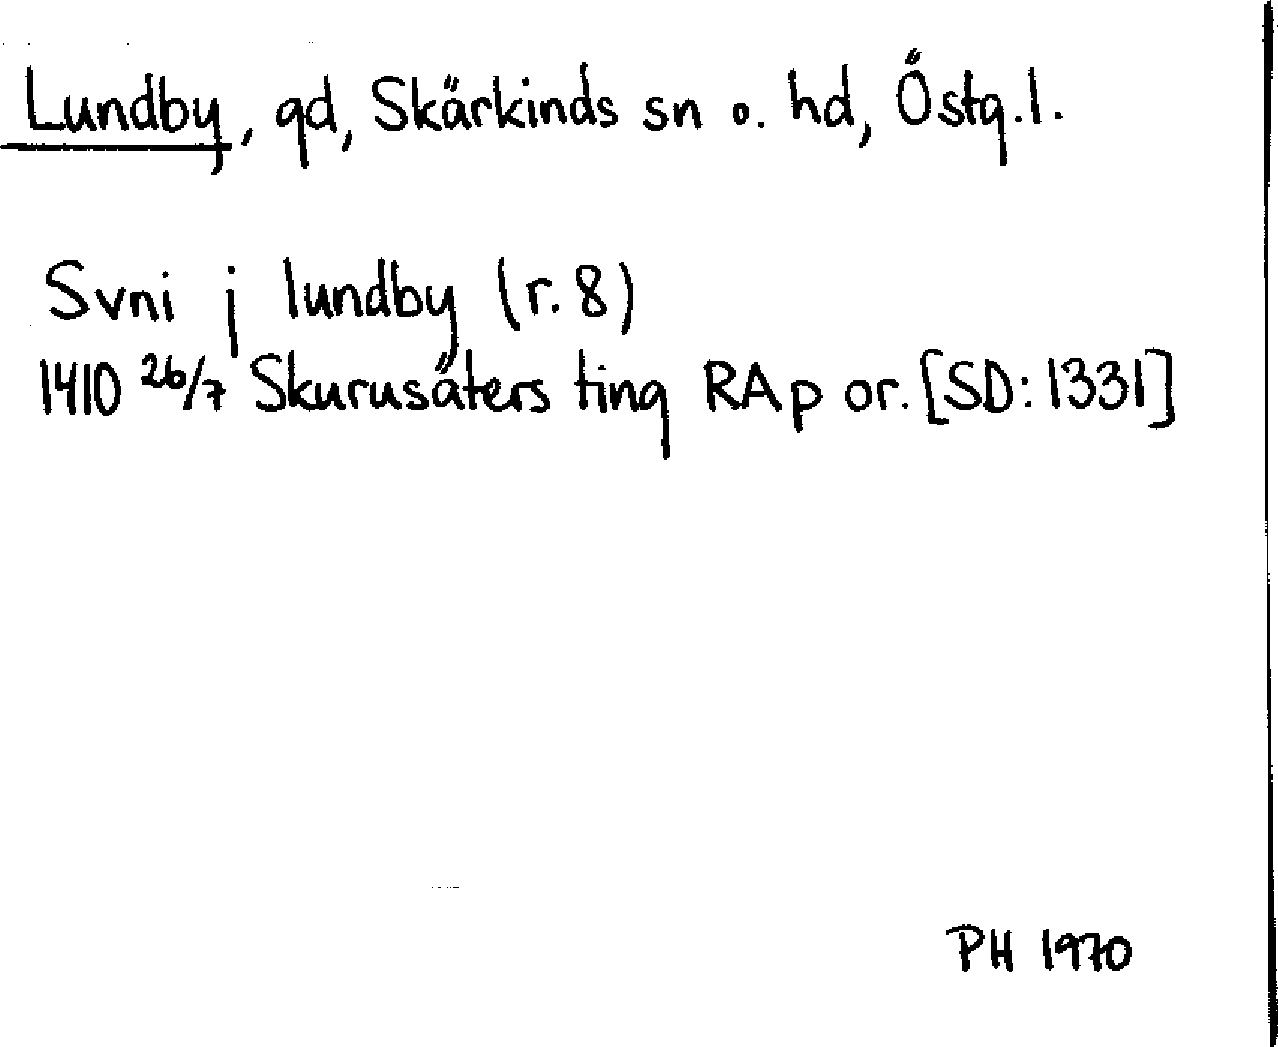 Lundby, gd, Skärkinds sn o. hd, Östg.l.
Svni j lundby (r.8)
1410 26/7 Skurusäters ting RAp or. [SD: 1331]
PH 1970